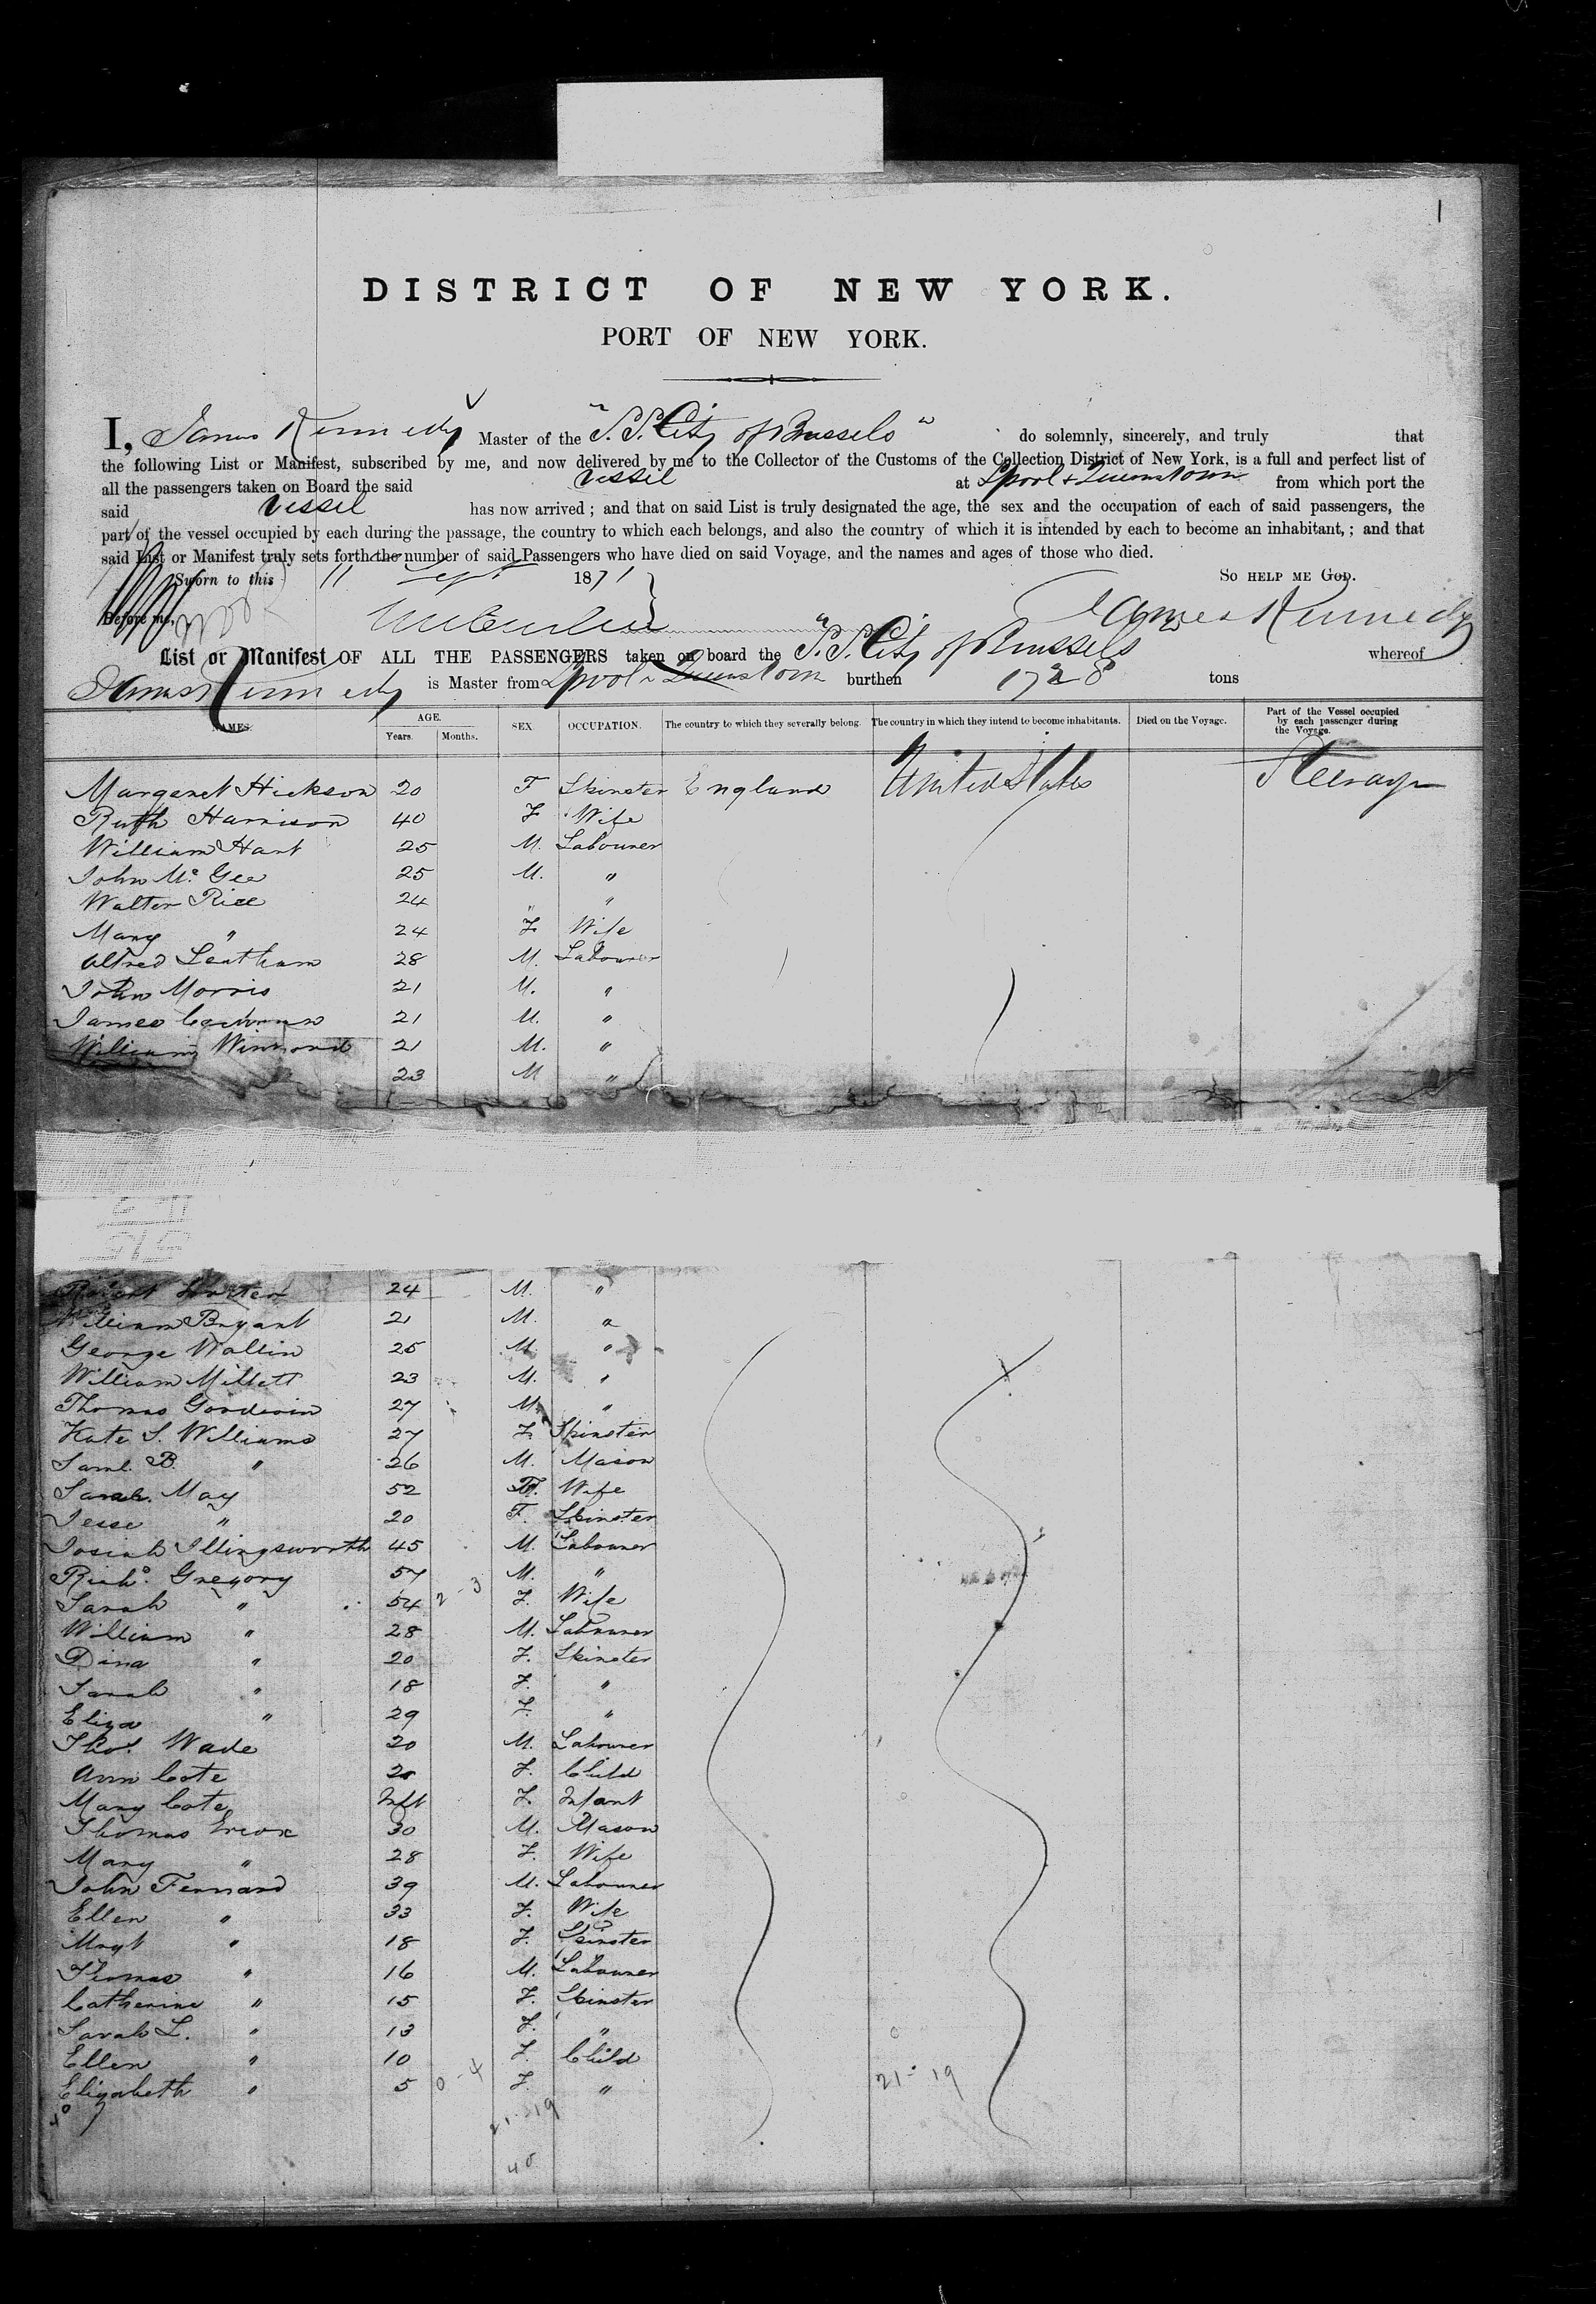 1
DISTRICT OF NEW YORK.
PORT OF NEW YORK.
I, James Kennedy Master of the "S.S. City of Brussels" do solemnly, sincerely, and truly that
the following List or Manifest, subscribed by me, and now delivered by me to the Collector of the Customs of the Collection District of New York, is a full and perfect list of
all the passengers taken on Board the said Vessel at Lpool & Queenstown from which port the
said Vessel has now arrived ; and that on said List is truly designated the age, the sex and the occupation of each of said passengers, the
part of the vessel occupied by each during the passage, the country to which each belongs, and also the country of which it is intended by each to become an inhabitant, ; and that
said List or Manifest truly sets forth the number of said Passengers who have died on said Voyage, and the names and ages of those who died.
Sworn to this 11 Sept 1871 So help me God.
Before me, James Kennedy
List or Manifest OF ALL THE PASSENGERS taken on board the "S.S. City of Brussels whereof
James Kennedy is Master from Lpool & Queenstown burthen 1728 tons
NAMES. AGE. Years. Months. SEX. OCCUPATION. The country to which they severally belong. The country in which they intend to become inhabitants. Died on the Voyage. Part of the Vessel occupied by each passenger during the Voyage.
Margaret Hickson 20 F Spinster England United States Steerage
Ruth Harrison 40 F Wife
William Hart 25 M. Labourer
John Mc Gee 25 M. "
Walter Rice 24 " "
Mary " 24 F Wife
Alfred Leatham 28 M. Labourer
John Morris 21 M. "
James 21 M. "
William 21 M. "
23 M "
Robert 24 M. "
William Bryant 21 M. "
George Wallin 25 M. "
William Millett 23 M. "
Thomas Goodwin 27 M. "
Kate S. Williams 27 F. Spinster
Saml. B. " 26 M. Mason
Sarah May 52 F. Wife
Jesse " 20 F. Spinster
Josiah Illingsworth 45 M. Labourer
Richd. Gregory 57 M. "
Sarah " 54 2-3 F. Wife
William " 28 M. Labourer
Dina " 20 F. Spinster
Sarah " 18 F. "
Eliza " 29 F. "
Thos. Wade 20 M. Labourer
Ann Cote F. Child
Mary Cote Inft F. Infant
Thomas 30 M. Mason
Mary " 28 F. Wife
John Fennard 39 M. Labourer
Ellen " 33 F. Wife
Mrgt " 18 F. Spinster
Thomas " 16 M. Labourer
Catherine " 15 F. Spinster
Sarah L. " 13 F. "
Ellen " 10 F. Child
Elizabeth " 5 0-4 F. " 21-19
40 21-19
40